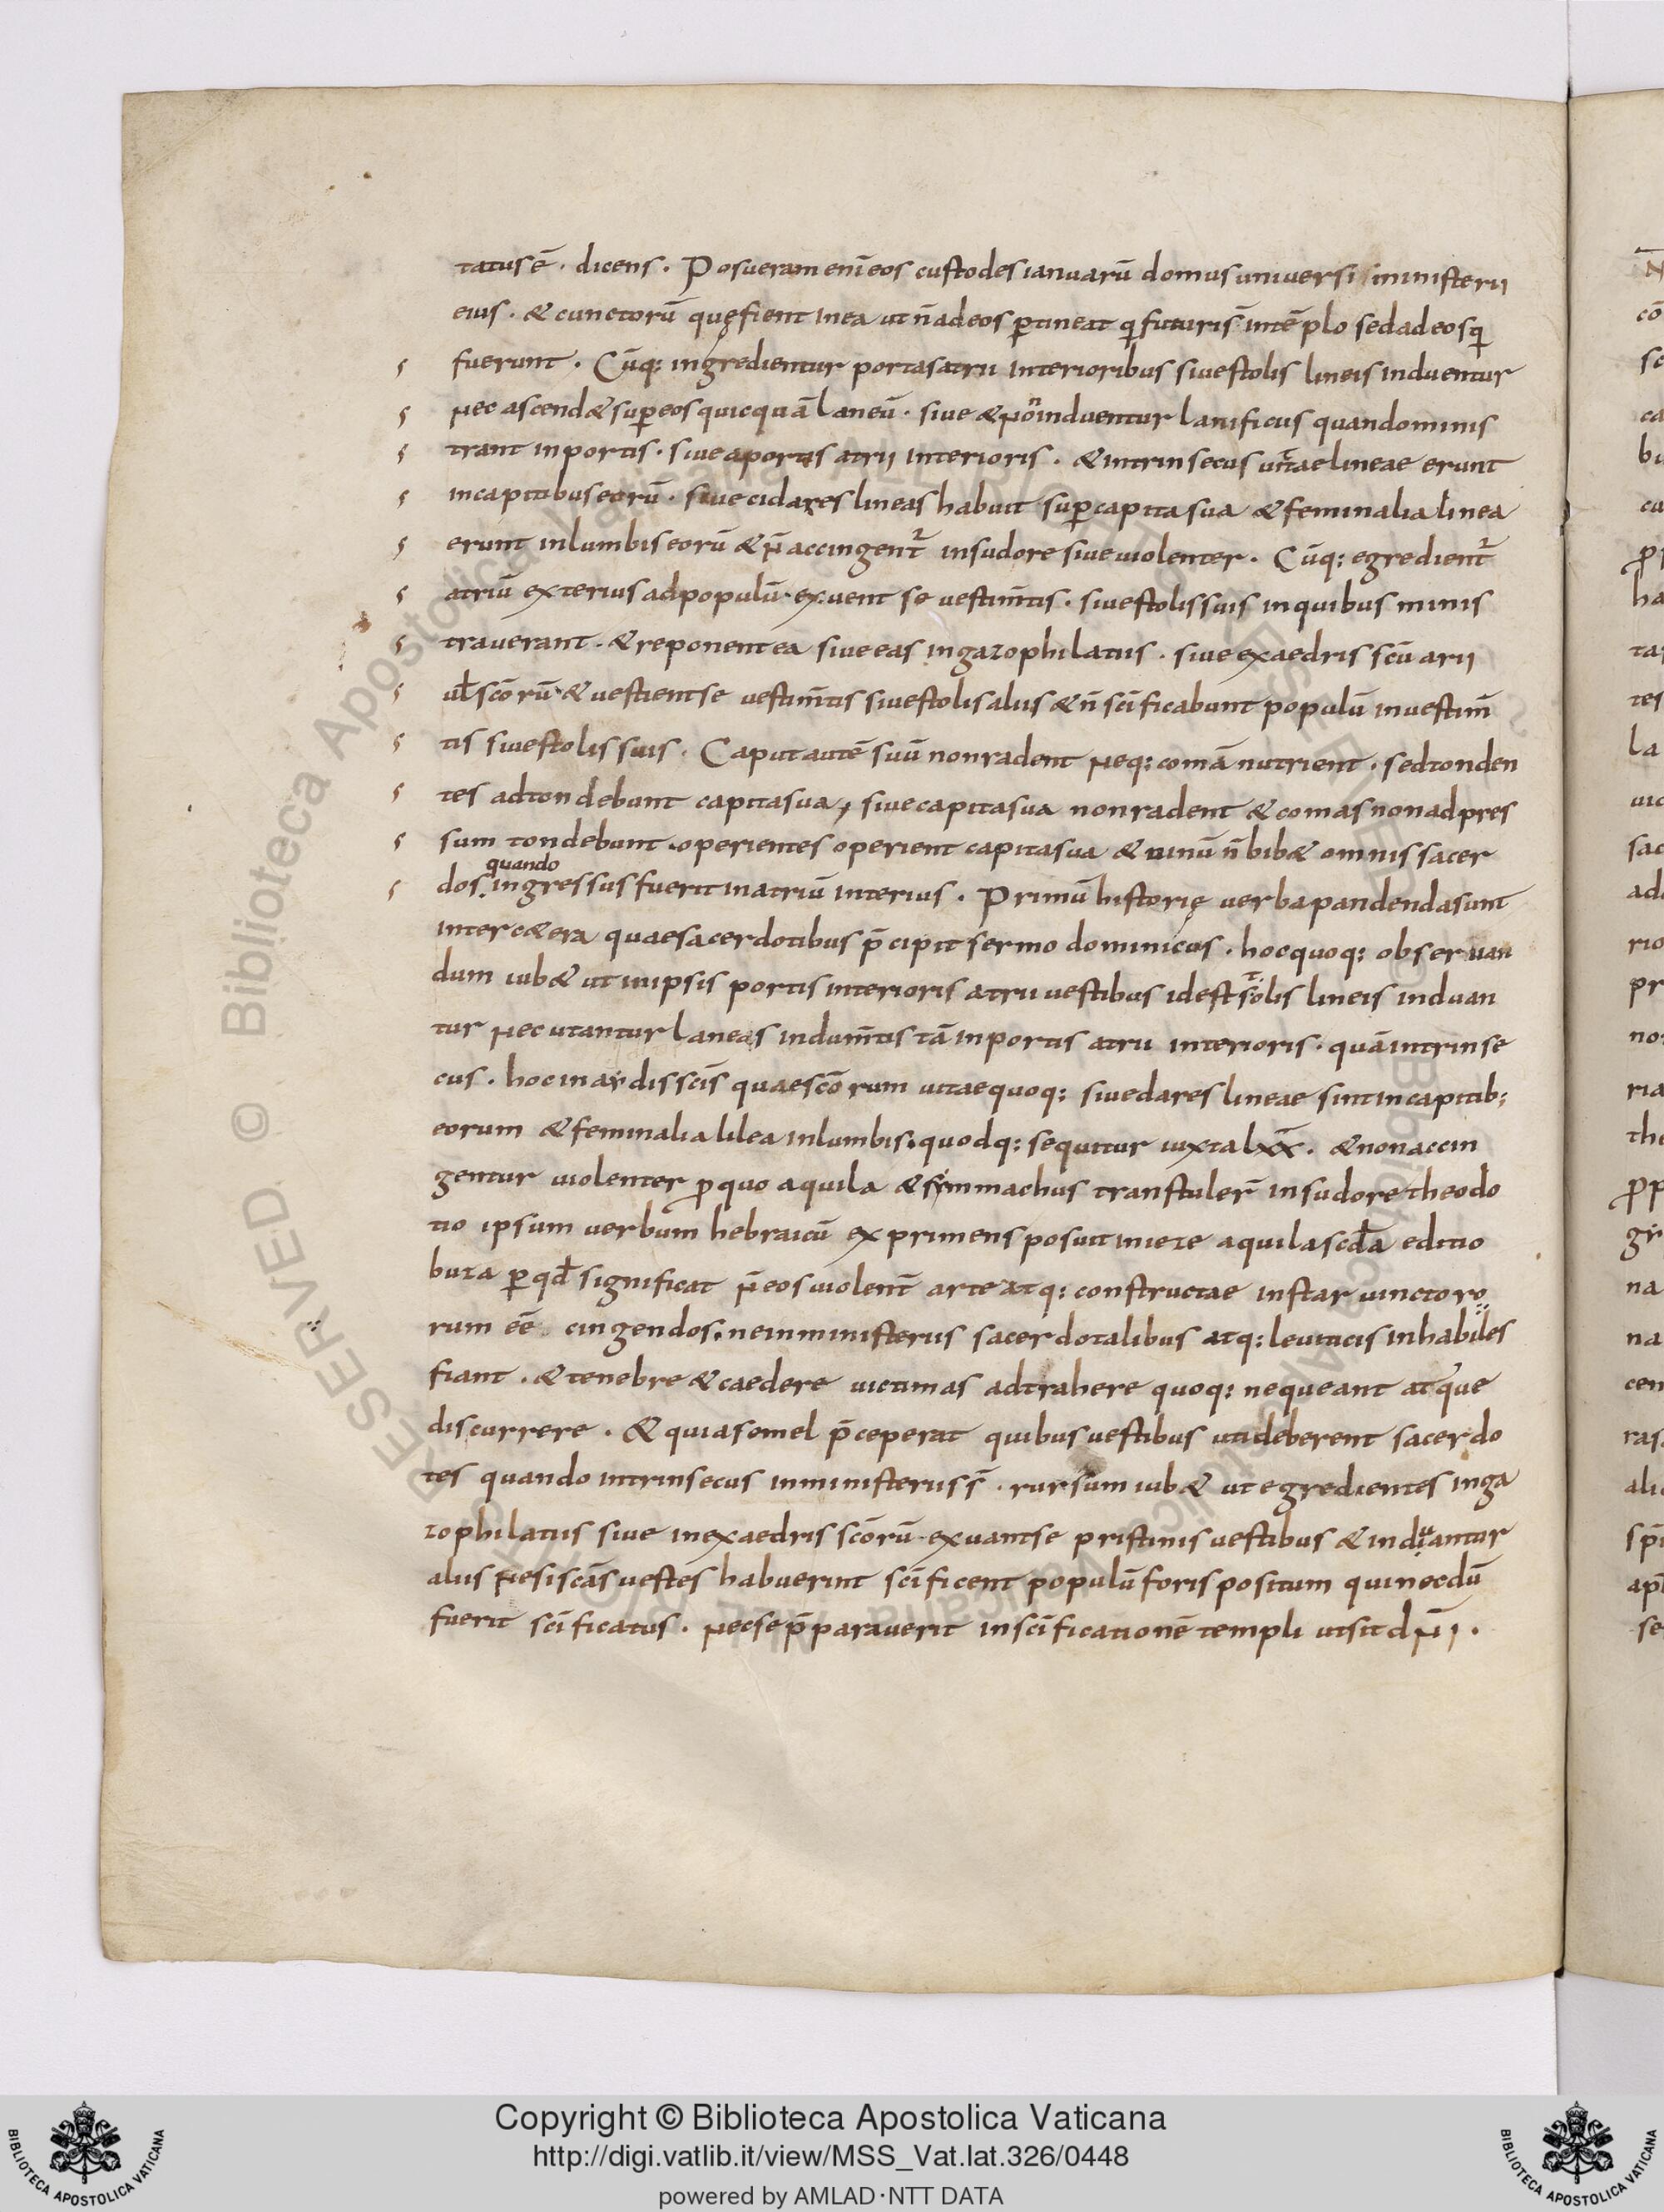 tatus ē · dicens · Posueram enī eos custodes ianuarū domus uniuersi ministerii
eius · & cunctorū quę fient in ea ut n̄ ad eos ꝑtineat q̇ futuri s̄ in tēplo sed ad eos q̇
fuerunt · Cūq: ingredientur portas atrii interioribus siue stolis lineis induentur
nec ascend& suꝑ eos quicquā laneū · siue & nōn induentur lanificus quando minis
trant in portis · siue a portis atrii interioris · & intrinsecus uittae lineae erunt
in capitibus eorū · siue cidares lineas habuit suꝑ capita sua & feminalia linea
erunt in lumbis eorū & n̄ accingent᷑ in sudore siue uiolenter · Cūq: egredient᷑
atriū exterius ad populū · exuent se uestim̄tis · siue stolis suis in quibus minis
trauerant · & reponent ea siue eas in gazophilatiis · siue exaedris scūarii
ul̄ scōrū · & uestient se uestim̄tis siue stolis aliis & n̄ scīficabunt populū in uestim̄
tis siue stolis suis · Caput autē suū non radent neq: comā nutrient · sed tonden
tes adtondebunt capita sua, siue capita sua non radent & comas non ad pres
sum tondebunt · operientes operient capita sua & uinū n̄ bib& omnis sacer
quando
dos · ingressus fuerit in atriū interius · Primū historię uerba pandenda sunt
inter c&era quae sacerdotibus p̄cipit sermo dominicus · hoc quoq: obseruan
dum iub& ut in ipsis portis interioris atrii uestibus id est stolis lineis induan
tur nec utantur laneas indum̄tis tā in portis atrii interioris · quā intrinse
cus · hoc in aedis scīs quae scōrum uittae quoq: siue dares lineae sint in capitib;
eorum & feminalia lilea in lumbis · quodq: sequitur iuxta lxx̄ · & non accin
gentur uiolenter ꝑ quo aquila & symmachus transtuler̄ in sudore theodo
tio ipsum uerbum hebraicū exprimens posuit in ieze aquila scd̄a editio
buza ꝑ qd̄ significat n̄ eos uiolent̄ arte atq: constructae instar uinctoro
rum ēē cingendos · ne in ministeriis sacerdotalibus atq: leuiticis inhabiles
fiant · & tenebre & caedere uictimas adtrahere quoq: nequeant atque
discurrere · & quia somel p̄ceperat quibus uestibus uti deberent sacerdo
tes quando intrinsecus in ministeriis s̄ · rursum iub& ut egredientes in ga
zophilatiis siue in exaedris scōrū · exuant se pristinis uestibus & induantur
aliis ne si scās uestes habuerint scīficent populū foris positum qui necdū
fuerit scīficatus · nec se p̄parauerit in scīficationē templi ut sit dn̄i ·
Copyright © Biblioteca Apostolica Vaticana
http://digi.vatlib.it/view/MSS_Vat.lat.326/0448
powered by AMLAD·NTT DATA
BIBLIOTECA APOSTOLICA VATICANA
BIBLIOTECA APOSTOLICA VATICANA